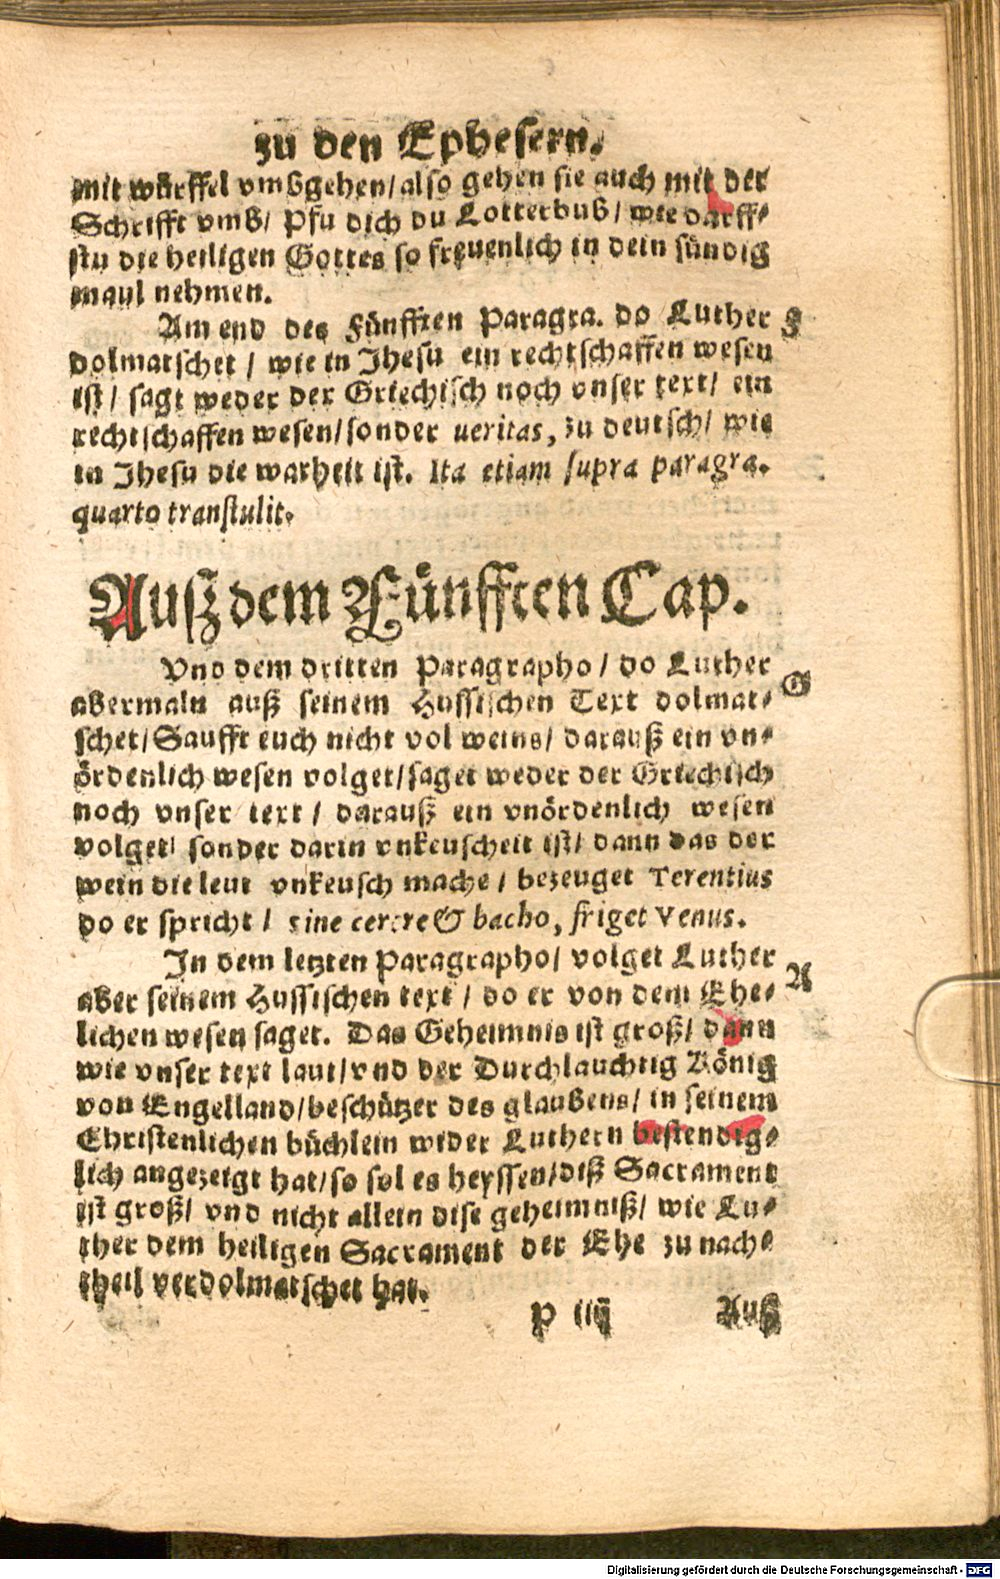 zu den Ephesern.
mit würffel vmbgehen/also gehen sie auch mit der
Schrifft vmb/ Pfu dich du Lotterbub/ wie darff-
stu die heiligen Gottes so freuenlich in dein sündig
maul nehmen.
Am end des Fünfften Paragra. do Luther
dolmatschet / wie in Jhesu ein rechtschaffen wesen
ist/ sagt weder der Griechisch noch vnser text/ ein
rechtschaffen wesen/sonder ueritas, zu deutsch/ wie
in Jhesu die warheit ist. Ita etiam supra paragra.
quarto transtulit.
Außdem Fünfften Cap.
Vnd dem dritten Paragrapho/ do Luther
G
abermaln auß seinem Hussischen Text dolmat-
schet/Saufft euch nicht vol weins/ darauß ein vn-
ördenlich wesen volget/saget weder der Griechisch
noch vnser text / darauß ein vnördenlich wesen
volget/ sonder darin vnkeuscheit ist/ dann das der
wein die leut vnkeusch mache / bezeuget Terentius
do er spricht / sine cerere & bacho, friget Venus.
In dem letzten Paragrapho/ volget Luther
A
aber seinem Hussischen text / do er von dem Ehe-
lichen wesen saget. Das Geheimnis ist groß/ dann
wie vnser text laut/vnd der Durchlauchtig König
von Engelland/beschützer des glaubens/ in seinem
Christenlichen büchlein wider Luthern bestendig-
lich angezeigt hat/so sol es heyssen/diß Sacrament
ist groß/ vnd nicht allein dise geheimniß/ wie Lu-
ther dem heiligen Sacrament der Ehe zu nach-
theil verdolmatschet hat.
P iiij Auß
Digitalisierung gefördert durch die Deutsche Forschungsgemeinschaft - DFG